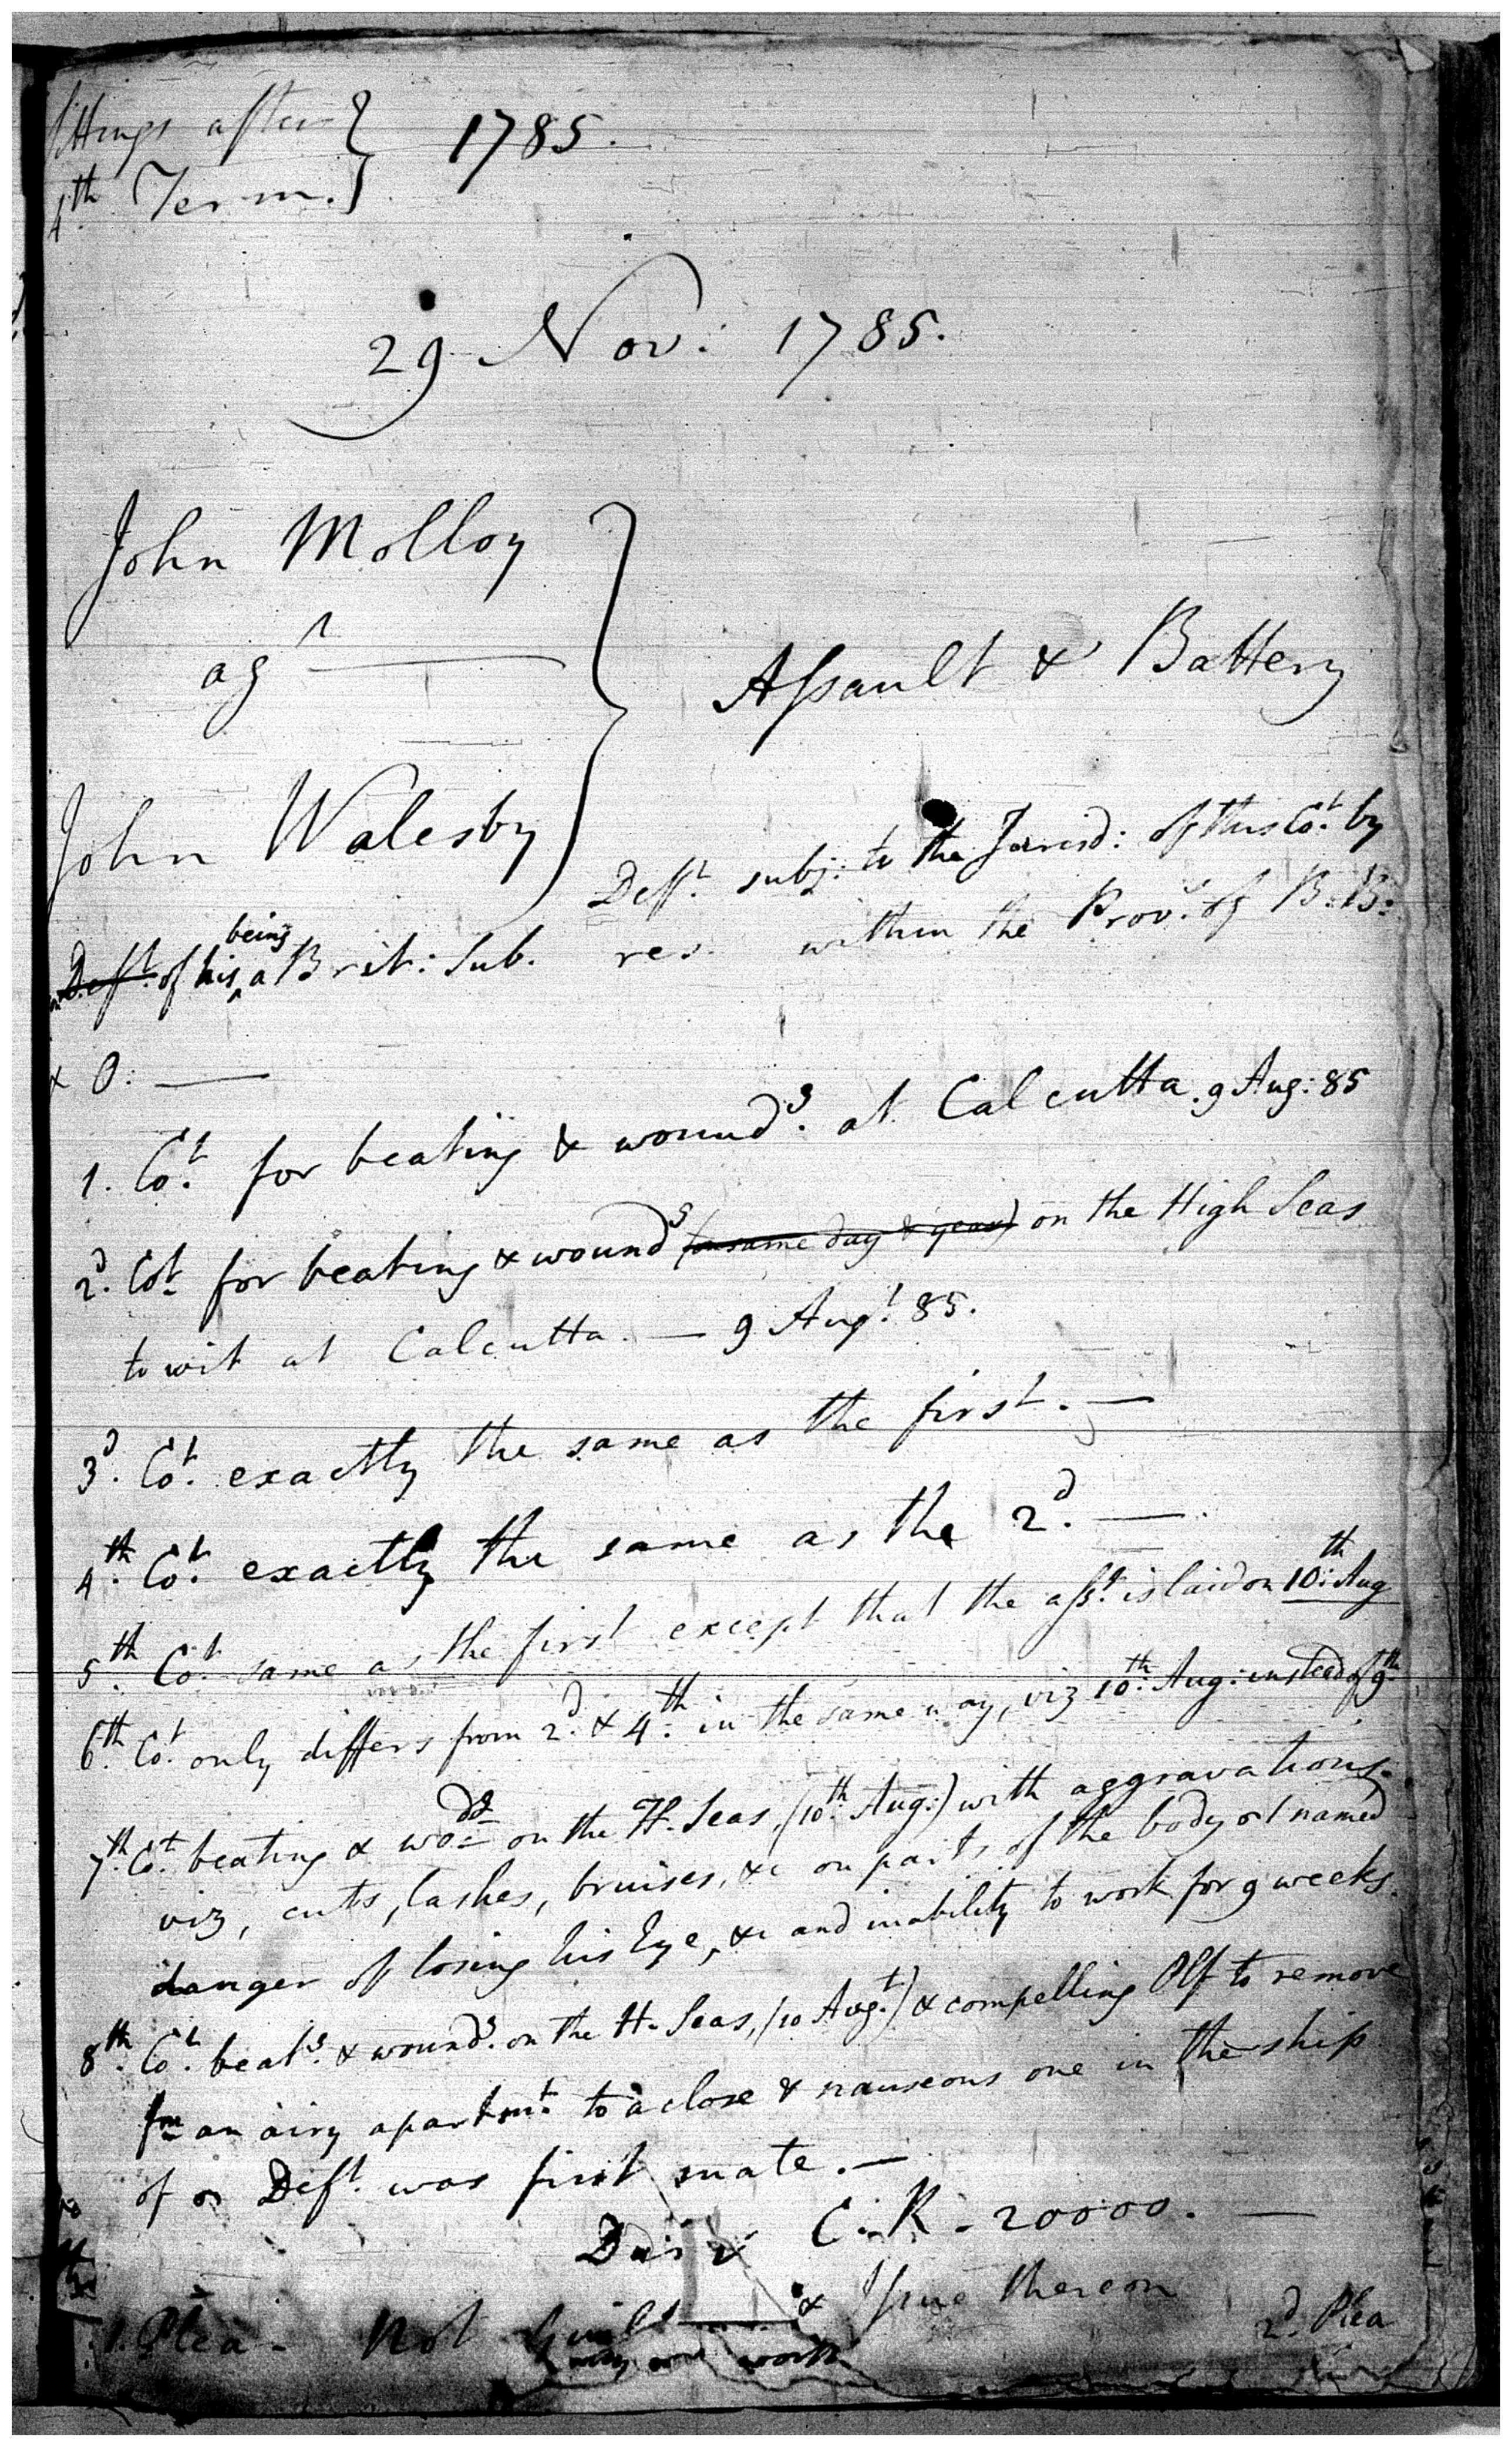 Sittings after
4th Term. } 1785.
29 Nov: 1785.
John Molloy
agt
Assault & Battery
John Walesby
Deft. subj: to the Jurisd: of this Cot. by
being
Deft. of his a Brit: Sub. res. within the Prov. of B: B:
& O:—
1. Cot. for beating & wounds. at Calcutta. 9 Aug: 85
2d. Cot. for beating & wounds (on same day & year) on the High Seas
to wit at Calcutta. — 9 Augt. 85.
3d. Cot. exactly the same as the first. —
4th. Cot. exactly the same as the 2d. —
5th. Cot. same as the first except that the asst. is laid on 10th: Aug
6th. Cot. only differs from 2d. & 4th. in the same way, viz 10th: Aug: instead of 9th.
7th. Cot. beating & wo on the H. Seas, (10th. Aug:) with aggravations.
viz, cuts, lashes, bruises, &c on parts of the body named
danger of losing his Eye, &c and inability to work for 9 weeks.
8th. Cot. beats. & wounds. on the H. Seas, (10 Augt.) & compelling Plf to remove
fm an airy apartmt. to a close & nauseous one in the ship
of Deft. was first mate. —
C. R. 20000. —
1. Plea - Not Guilty — & Issue thereon
2d. Plea
worth